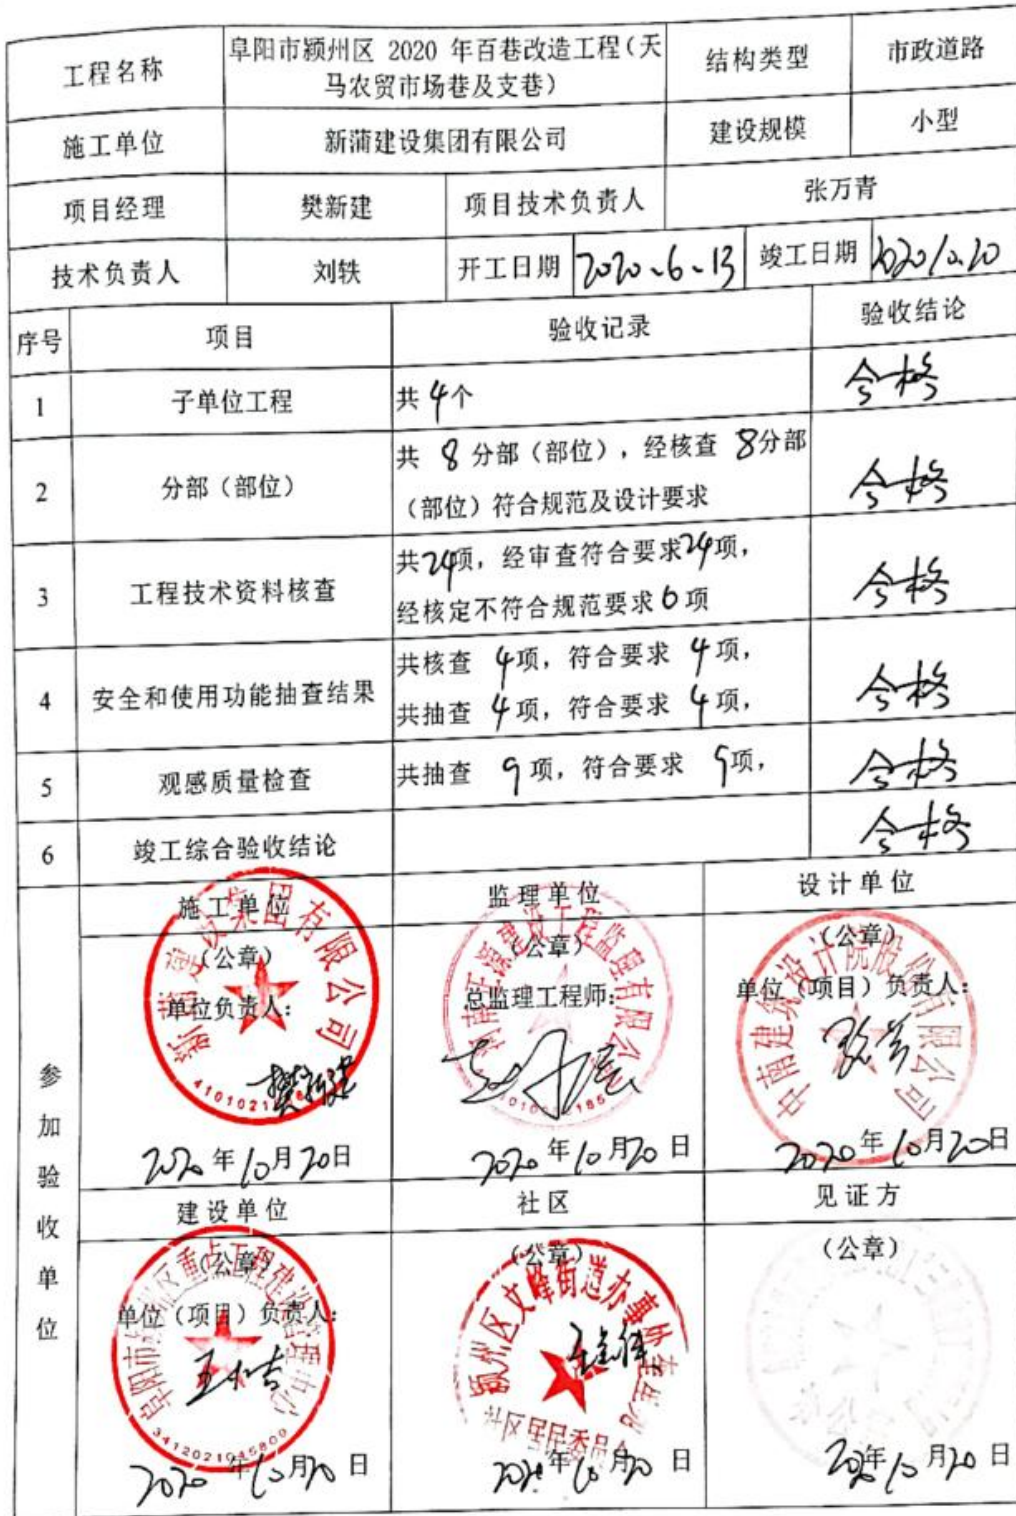 工程名称
阜阳市颍州区 2020 年百巷改造工程(天
马农贸市场巷及支巷)
结构类型
市政道路
施工单位
新蒲建设集团有限公司
建设规模
小型
项目经理
樊新建
项目技术负责人
张万青
技术负责人
刘轶
开工日期
2020、6、13
竣工日期
2020.10.20
序号
项目
验收记录
验收结论
1
子单位工程
共 4 个
合格
2
分部(部位)
共 8 分部(部位),经核查 8 分部
(部位)符合规范及设计要求
合格
3
工程技术资料核查
共24项,经审查符合要求24项,
经核定不符合规范要求 0 项
合格
4
安全和使用功能抽查结果
共核查 4 项,符合要求 4 项,
共抽查 4 项,符合要求 4 项,
合格
5
观感质量检查
共抽查 9 项,符合要求 9 项,
合格
6
竣工综合验收结论
合格
参加验收单位
施工单位
(公章)
单位负责人:
樊新建
新蒲建设集团有限公司
2020 年 10 月 20 日
监理单位
(公章)
总监理工程师:
2020 年 10 月 20 日
设计单位
(公章)
单位(项目)负责人:
中南建筑设计院股份有限公司
2020 年 10 月 20 日
建设单位
(公章)
单位(项目)负责人:
阜阳市颍州区重点工程建设管理中心
3412021045800
2020 年 10 月 20 日
社区
(公章)
颍州区文峰街道办事处
社区居民委员
2020 年 10 月 20 日
见证方
(公章)
2020 年 10 月 20 日